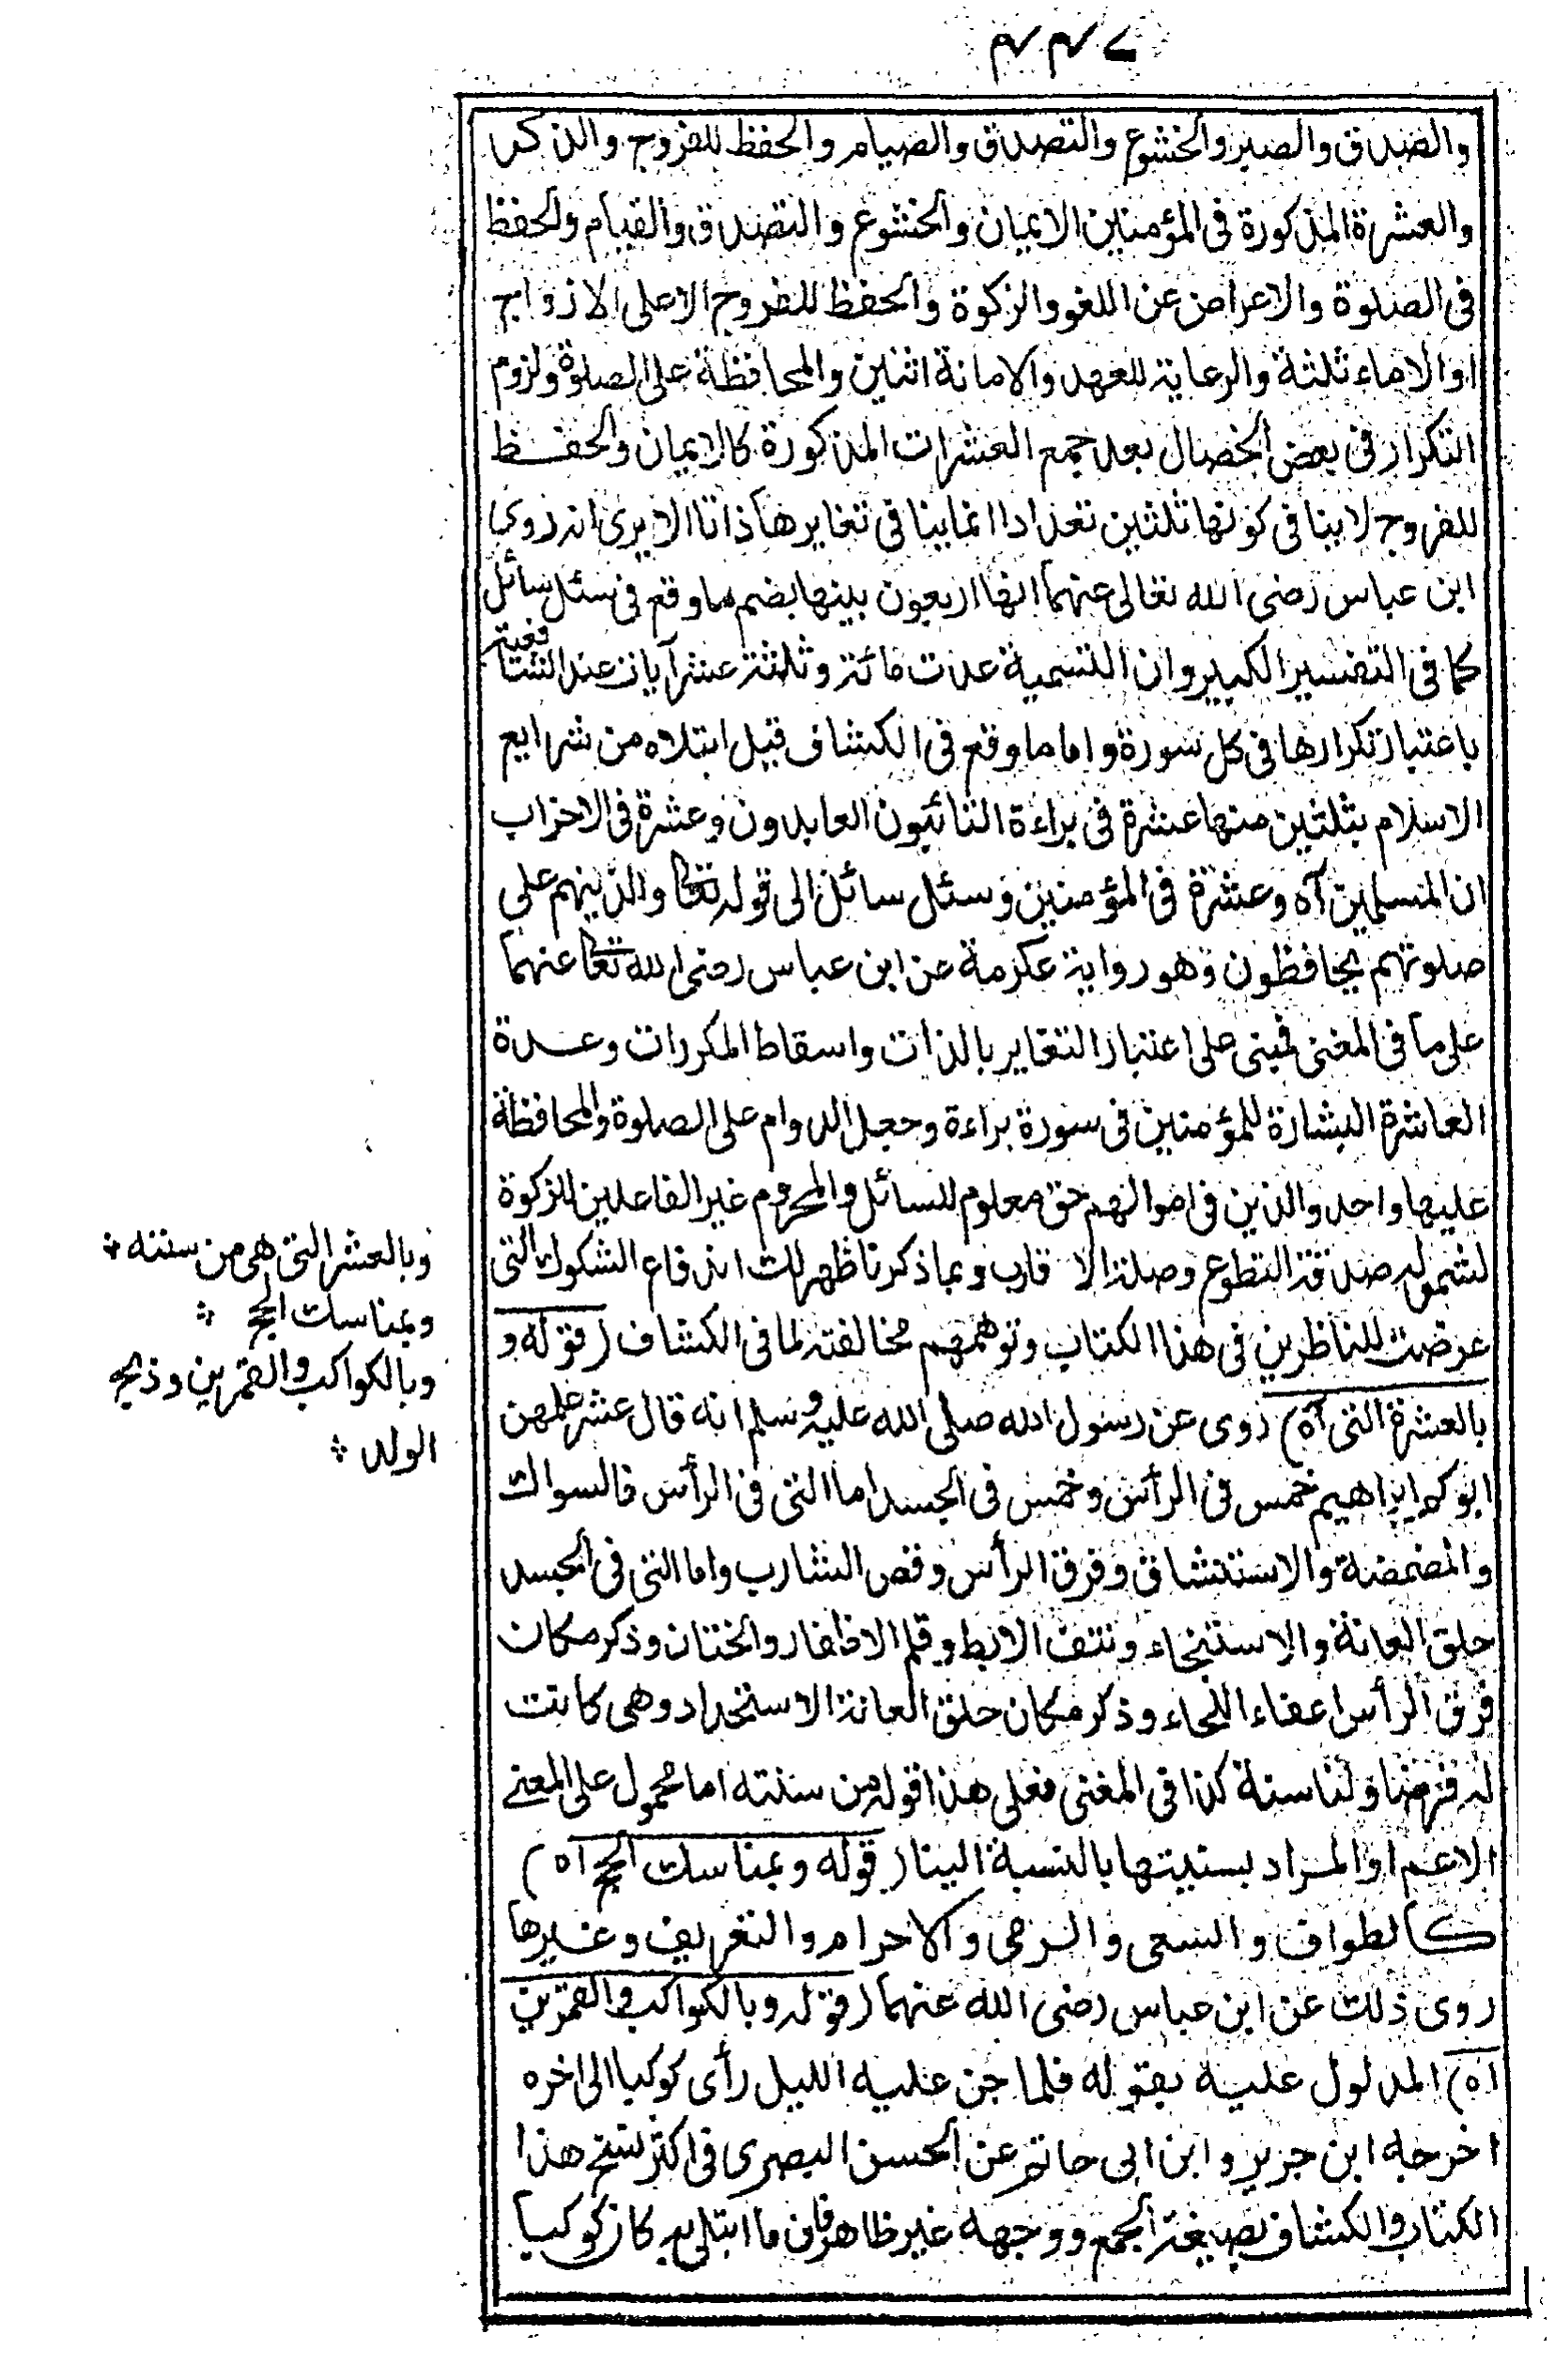 ٤٤٧
والصدق والصبر والخشوع والتصدق والصيام والحفظ للفروج والذكر
والعشرة المذكورة فى المؤمنين الايمان والخشوع والتصدق والقيام والحفظ
فى الصلوة والاعراض عن اللغو والزكوة والحفظ للفروج الا على الازواج
او الاماء ثلثة والرعاية للعهد والامانة اثنين والمحافظة على الصلوة ولزوم
التكرار فى بعض الخصال بعد جمع العشرات المذكورة كالايمان والحفظ
للفروج لا ينافى كونها ثلثين تعدادا انما ينافى تغايرها ذاتا الا يرى انه روى
ابن عباس رضى الله تعالى عنهما انها اربعون بينها بضم ما وقع فى سئل سائل
كما فى التفسير الكبير وان التسمية عدت مائة وثلثة عشر آيات عند الشافعية
باعتبار تكرارها فى كل سورة واما ما وقع فى الكشاف قيل ابتلاه من شرايع
الاسلام بثلثين منها عشرة فى براءة التائبون العابدون وعشرة فى الاحزاب
ان المسلمين آه وعشرة فى المؤمنين وسئل سائل الى قوله تعا والذين هم على
صلوتهم يحافظون وهو رواية عكرمة عن ابن عباس رضى الله تعا عنهما
على ما فى المغنى فمبنى على اعتبار التغاير بالذات واسقاط المكررات وعدة
العاشرة البشارة للمؤمنين فى سورة براءة وجعل الدوام على الصلوة والمحافظة
عليها واحد والذين فى اموالهم حق معلوم للسائل والمحروم غير الفاعلين للزكوة
لشموله صدقة التطوع وصلة الاقارب وبما ذكرنا ظهر لك اندفاع الشكوك التى
عرضت للناظرين فى هذا الكتاب وتوهمهم مخالفته لما فى الكشاف (قوله و
بالعشرة التى آه) روى عن رسول الله صلى الله عليه وسلم انه قال عشر علمهن
ابوكم ابراهيم خمس فى الرأس وخمس فى الجسد اما التى فى الرأس فالسواك
والمضمضة والاستنشاق وفرق الرأس وقص الشارب واما التى فى الجسد
حلق العانة والاستنجاء ونتف الابط وقلم الاظفار والختان وذكر مكان
فرق الرأس اعفاء اللحاء وذكر مكان حلق العانة الاستحداد وهى كانت
له فرضا ولنا سنة كذا فى المغنى فعلى هذا قوله من سنته اما محمول على المعنى
الاعم او المراد بسنيتها بالنسبة الينا (قوله وبمناسك الحج اه)
كالطواف والسعى والرمى والاحرام والتعريف وغيرها
روى ذلك عن ابن عباس رضى الله عنهما (قوله وبالكواكب والقمرين
اه) المدلول عليه بقوله فلما جن عليه الليل رأى كوكبا الى اخره
اخرجه ابن جرير وابن ابى حاتم عن الحسن البصرى فى اكثر نسخ هذا
الكتاب والكشاف بصيغة الجمع ووجهه غير ظاهر فان ما ابتلى به كان كوكبا
وبالعشر التى هى من سننه
وبمناسك الحج
وبالكواكب والقمرين وذبح
الولد